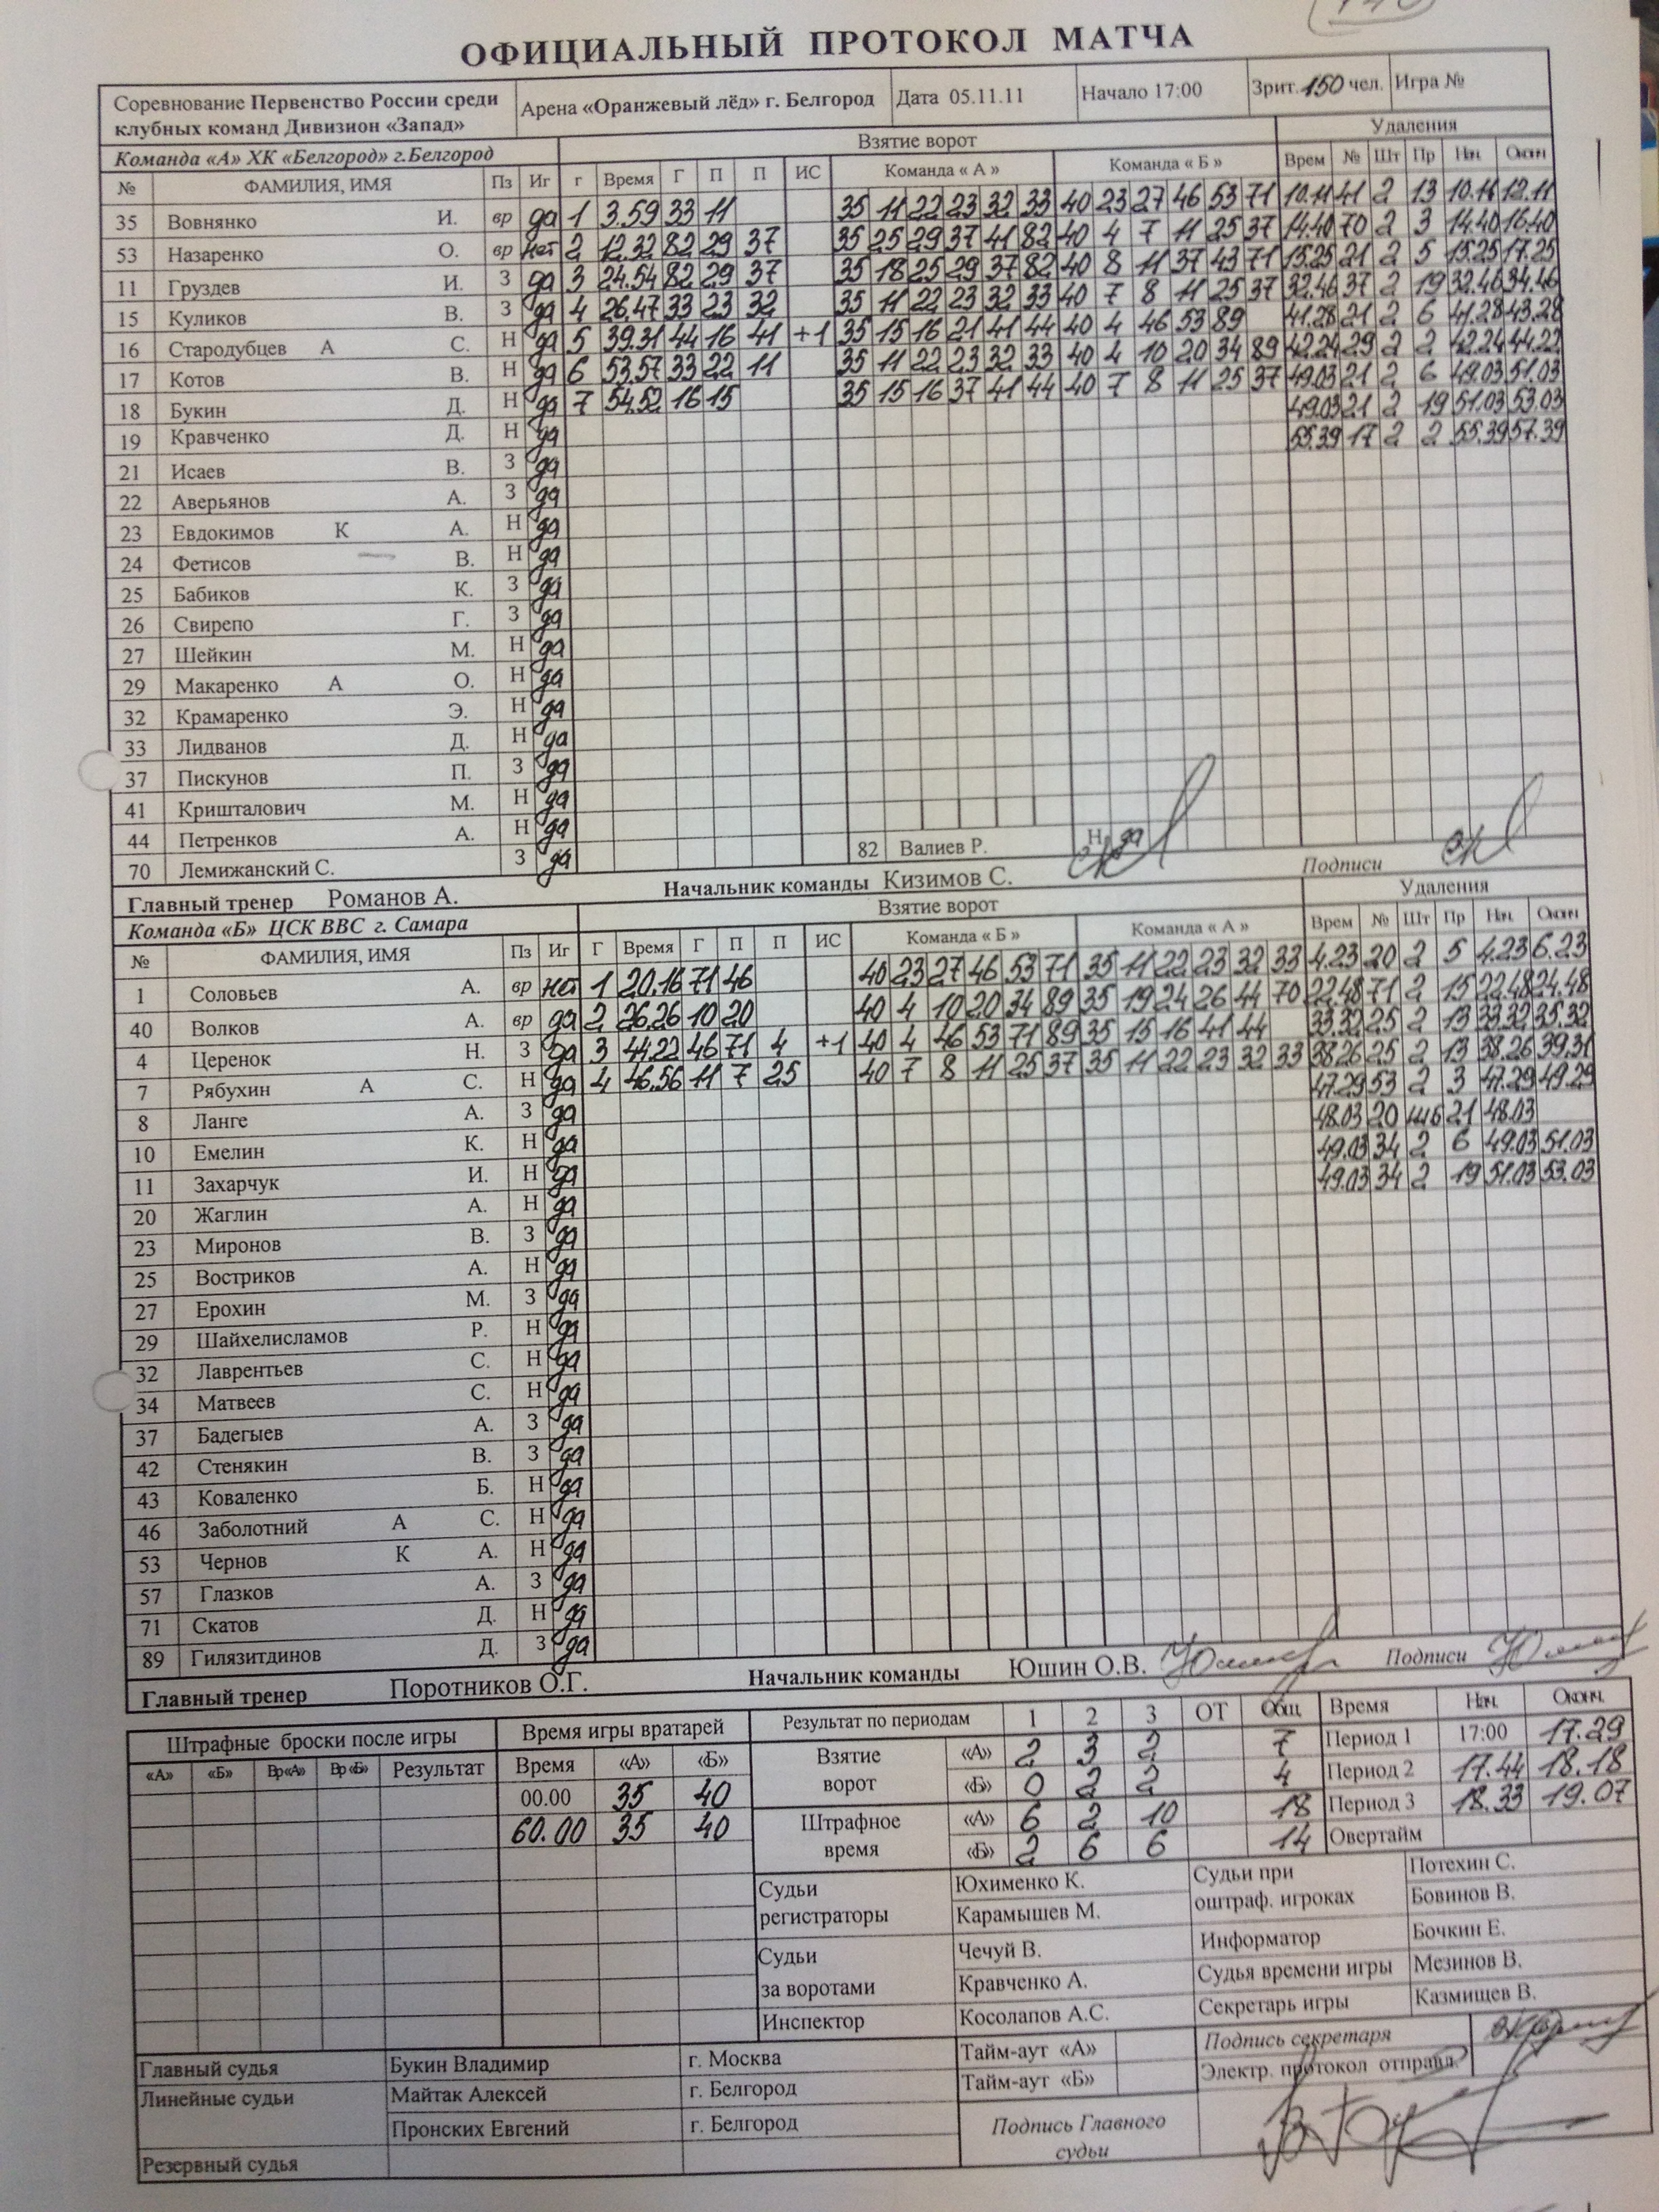 ОФИЦИАЛЬНЫЙ ПРОТОКОЛ МАТЧА
Соревнование Первенство России среди клубных команд Дивизион «Запад» Арена «Оранжевый лёд» г. Белгород Дата 05.11.11 Начало 17:00 Зрит. 150 чел. Игра №
Команда «А» ХК «Белгород» г.Белгород Взятие ворот Удаления
№ ФАМИЛИЯ, ИМЯ Пз Иг г Время Г П П ИС Команда « А » Команда « Б » Врем № Шт Пр Нач. Оконч
35 Вовнянко И. вр да 1 3.59 33 11 35 11 22 23 32 33 40 23 27 46 53 71 10.11 41 2 13 10.11 12.11
53 Назаренко О. вр нет 2 12.32 82 29 37 35 25 29 37 41 82 40 4 7 11 25 37 14.40 70 2 3 14.40 16.40
11 Груздев И. З да 3 24.54 82 29 37 35 18 25 29 37 82 40 8 11 37 43 71 15.25 21 2 5 15.25 17.25
15 Куликов В. З да 4 26.47 33 23 32 35 11 22 23 32 33 40 7 8 11 25 37 32.46 37 2 19 32.46 34.46
16 Стародубцев А С. Н да 5 39.31 44 16 41 +1 35 15 16 21 41 44 40 4 46 53 89 41.28 21 2 6 41.28 43.28
17 Котов В. Н да 6 53.57 33 22 11 35 11 22 23 32 33 40 4 10 20 34 89 42.24 29 2 2 42.24 44.22
18 Букин Д. Н да 7 54.52 16 15 35 15 16 37 41 44 40 7 8 11 25 37 49.03 21 2 6 49.03 51.03
19 Кравченко Д. Н да 49.03 21 2 19 51.03 53.03
21 Исаев В. З да 55.39 17 2 2 55.39 57.39
22 Аверьянов А. З да
23 Евдокимов К А. Н да
24 Фетисов В. Н да
25 Бабиков К. З да
26 Свирепо Г. З да
27 Шейкин М. Н да
29 Макаренко А О. Н да
32 Крамаренко Э. Н да
33 Лидванов Д. Н да
37 Пискунов П. З да
41 Кришталович М. Н да
44 Петренков А. Н да
70 Лемижанский С. З да 82 Валиев Р. Н да
Главный тренер Романов А. Начальник команды Кизимов С. Подписи
Команда «Б» ЦСК ВВС г. Самара Взятие ворот Удаления
№ ФАМИЛИЯ, ИМЯ Пз Иг Г Время Г П П ИС Команда « Б » Команда « А » Врем № Шт Пр Нач. Оконч
1 Соловьев А. вр нет 1 20.16 71 46 40 23 27 46 53 71 35 11 22 23 32 33 4.23 20 2 5 4.23 6.23
40 Волков А. вр да 2 26.26 10 20 40 4 10 20 34 89 35 19 24 26 44 70 22.48 71 2 15 22.48 24.48
4 Церенок Н. З да 3 44.22 46 71 4 +1 40 4 46 53 71 89 35 15 16 41 44 33.32 25 2 13 33.32 35.32
7 Рябухин А С. Н да 4 46.56 11 7 25 40 7 8 11 25 37 35 11 22 23 32 33 38.26 25 2 13 38.26 39.31
8 Ланге А. З да 47.29 53 2 3 47.29 49.29
10 Емелин К. Н да 48.03 20 шб 21 48.03
11 Захарчук И. Н да 49.03 34 2 6 49.03 51.03
20 Жаглин А. Н да 49.03 34 2 19 51.03 53.03
23 Миронов В. З да
25 Востриков А. Н да
27 Ерохин М. З да
29 Шайхелисламов Р. Н да
32 Лаврентьев С. Н да
34 Матвеев С. Н да
37 Бадегыев А. З да
42 Стенякин В. З да
43 Коваленко Б. Н да
46 Заболотний А С. Н да
53 Чернов К А. Н да
57 Глазков А. З да
71 Скатов Д. Н да
89 Гилязитдинов Д. З да
Главный тренер Поротников О.Г. Начальник команды Юшин О.В. Подписи
Штрафные броски после игры Время игры вратарей Результат по периодам 1 2 3 ОТ Общ. Время Нач. Оконч.
«А» «Б» Вр«А» Вр«Б» Результат Время «А» «Б» Взятие ворот «А» 2 3 2 7 Период 1 17:00 17.29
00.00 35 40 «Б» 0 2 2 4 Период 2 17.44 18.18
60.00 35 40 Штрафное время «А» 6 2 10 18 Период 3 18.33 19.07
«Б» 2 6 6 14 Овертайм
Судьи регистраторы Юхименко К. Судьи при оштраф. игроках Потехин С.
Карамышев М. Бовинов В.
Судьи за воротами Чечуй В. Информатор Бочкин Е.
Кравченко А. Судья времени игры Мезинов В.
Инспектор Косолапов А.С. Секретарь игры Казмищев В.
Главный судья Букин Владимир г. Москва Тайм-аут «А» Подпись секретаря
Линейные судьи Майтак Алексей г. Белгород Тайм-аут «Б» Электр. протокол отправл.
Пронских Евгений г. Белгород Подпись Главного судьи
Резервный судья